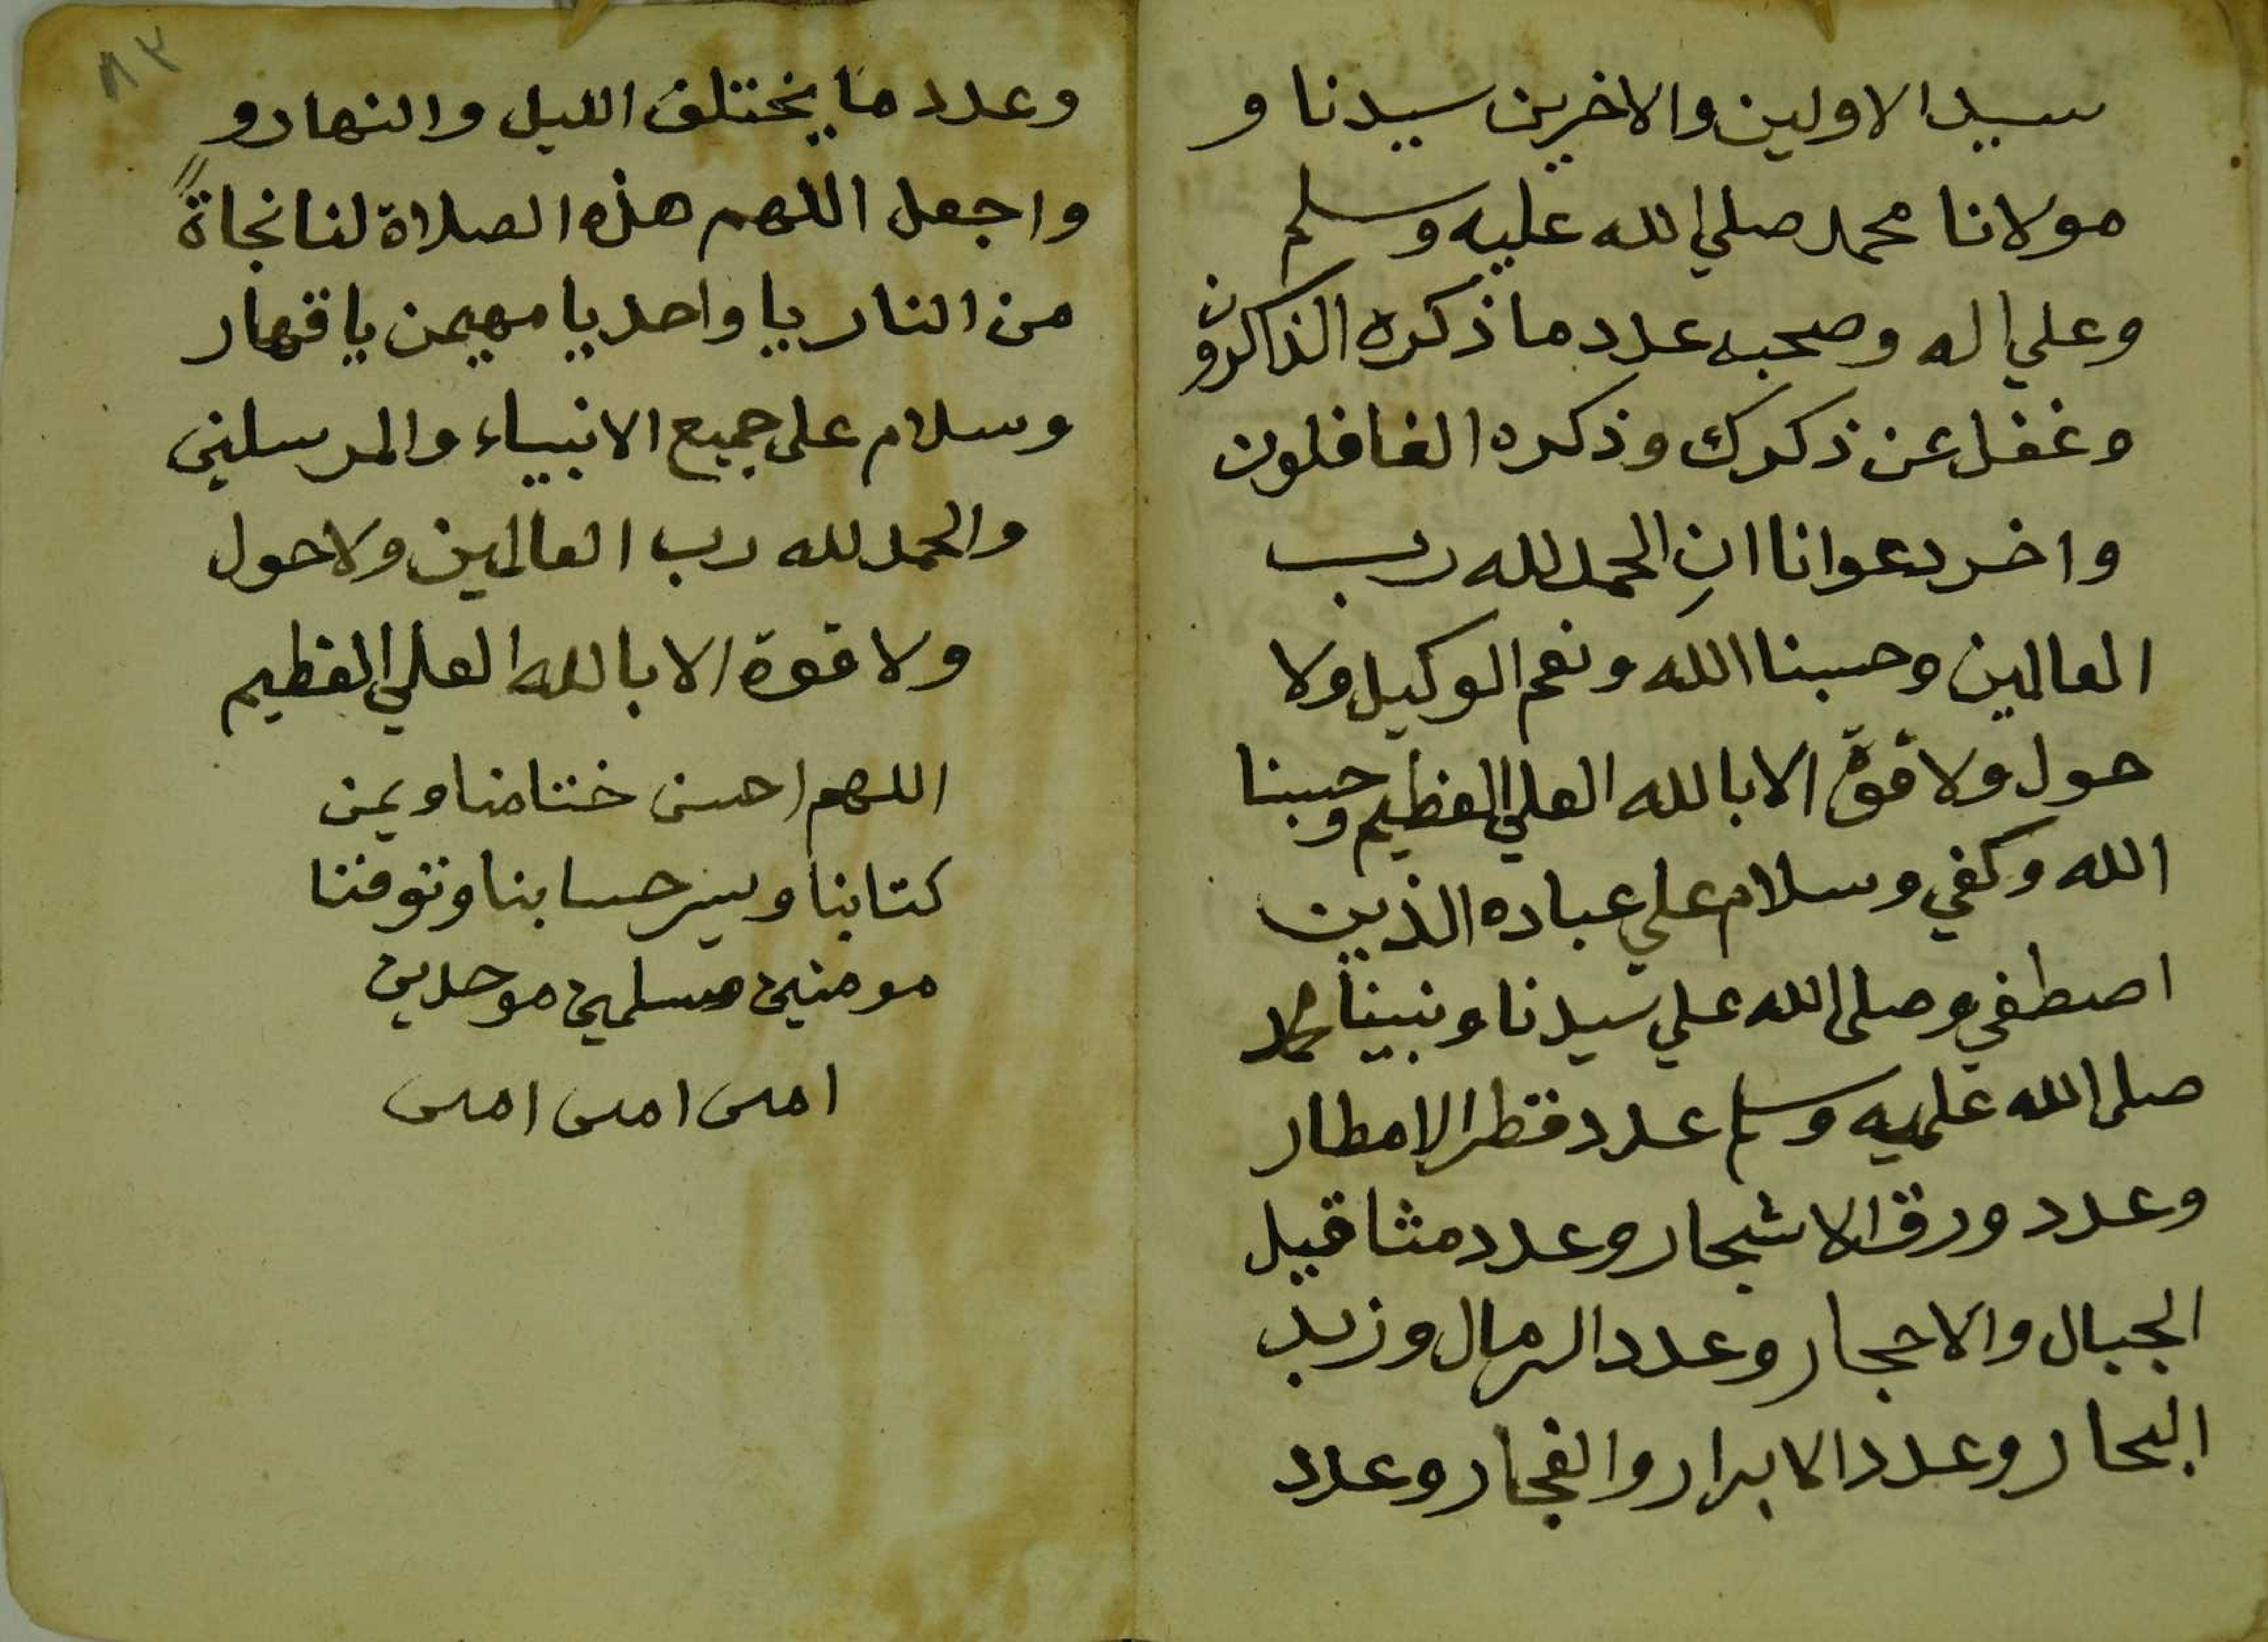 سيد الاولين والاخرين سيدنا و
مولانا محمد صلي الله عليه وسلم
وعلي اله وصحبه عدد ما ذكره الذاكرون
وغفل عن ذكرك وذكره الغافلون
واخر دعوانا ان الحمد لله رب
العالمين وحسبنا الله ونعم الوكيل ولا
حول ولا قوة الا بالله العلي العظيم وحسبنا
الله وكفي وسلام علي عباده الذين
اصطفي وصلى الله علي سيدنا ونبينا محمد
صلى الله عليه وسلم عدد قطر الامطار
وعدد ورق الاشجار وعدد مثاقيل
الجبال والاحجار وعدد الرمال وزبد
البحار وعدد الابرار والفجار وعدد
٨٣
وعدد ما يختلف الليل والنهار و
واجعل اللهم هذه الصلاة لنا نجاةً
من النار يا واحد يا مهيمن يا قهار
وسلام على جميع الانبياء والمرسلين
والحمد لله رب العالمين ولا حول
ولا قوة الا بالله العلي العظيم
اللهم احسن ختامنا ويمن
كتابنا ويسر حسابنا وتوفنا
مومنين مسلمين موحدين
امين امين امين